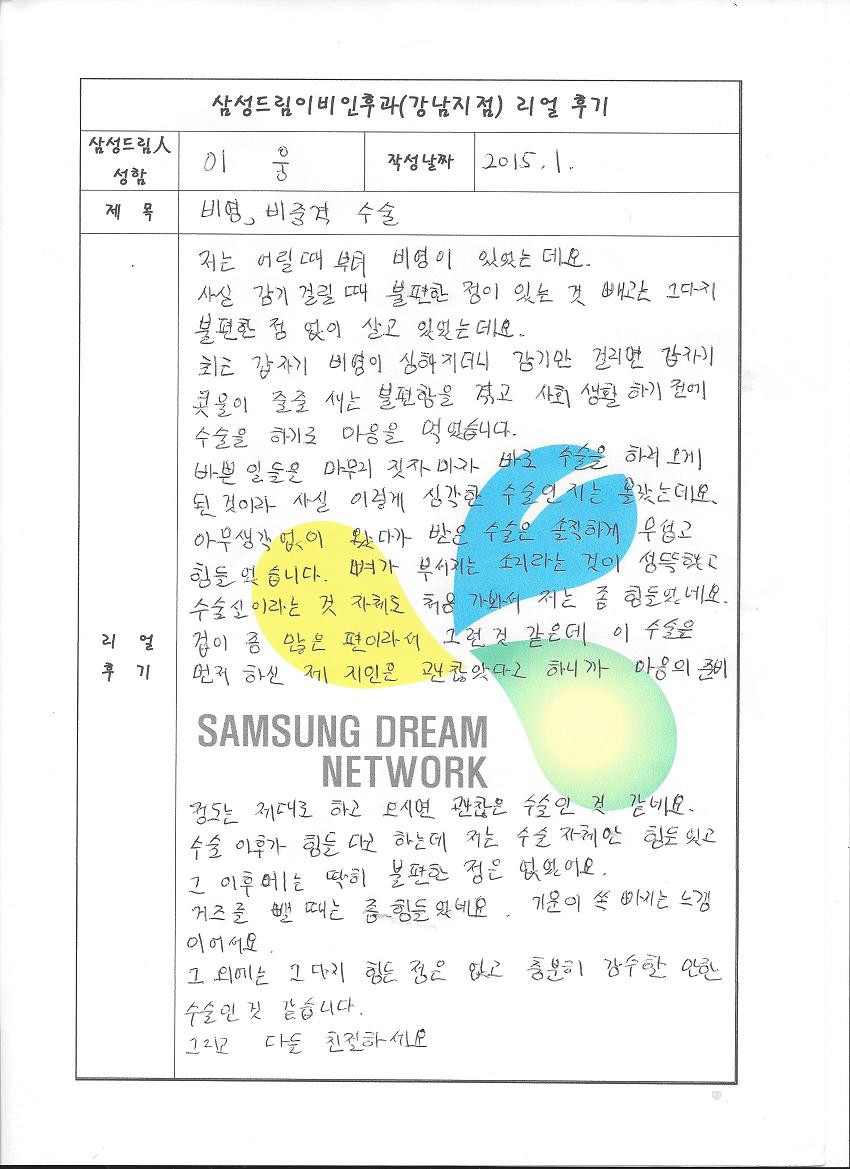 삼성드림이비인후과(강남지점) 리얼 후기
삼성드림人
성함
이 웅
작성날짜
2015. 1.
제 목
비염, 비중격 수술
리 얼
후 기
저는 어릴때 부터 비염이 있었는데요.
사실 감기 걸릴 때 불편한 점이 있는 것 빼곤 그다지
불편한 점 없이 살고 있었는데요.
최근 갑자기 비염이 심해지더니 감기만 걸리면 갑자기
콧물이 줄줄 새는 불편함을 겪고 사회 생활 하기 전에
수술을 하기로 마음을 먹었습니다.
바쁜 일들을 마무리 짓자 마자 바로 수술을 하러 오게
된 것이라 사실 이렇게 심각한 수술인 지는 몰랐는데요.
아무생각 없이 왔다가 받은 수술은 솔직하게 무섭고
힘들었습니다. 뼈가 부서지는 소리라는 것이 섬뜩했고
수술실이라는 것 자체도 처음 가봐서 저는 좀 힘들었네요.
겁이 좀 많은 편이라서 그런것 같은데 이 수술을
먼저 하신 제 지인은 괜찮았다고 하니까 마음의 준비
SAMSUNG DREAM
NETWORK
정도는 제대로 하고 오시면 괜찮은 수술인 것 같네요.
수술 이후가 힘들 다고 하는데 저는 수술 자체만 힘들었고
그 이후에는 딱히 불편한 점은 없었어요.
거즈를 뺄 때는 좀 힘들었네요. 기운이 쏙 빠지는 느낌
이어서요.
그 외에는 그다지 힘든 점은 없고 충분히 감수할 만한
수술인 것 같습니다.
그리고 다들 친절하세요